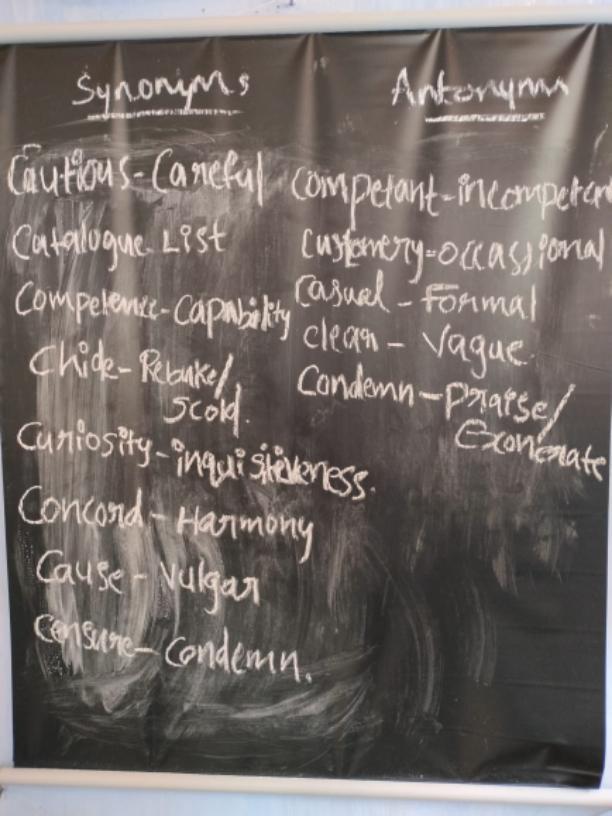 Synonyms
Cautious-Careful
Catalogue-List
Competence-Capability
Chide-Rebuke/
Scold.
Curiosity-inquisitiveness.
Concord-Harmony
Cause-Vulgar
Censure-Condemn.
Antonym
Competant-incompetent
Customery=occassional
Casual-Formal
Clean-Vague.
Condemn-Praise/
Exonerate